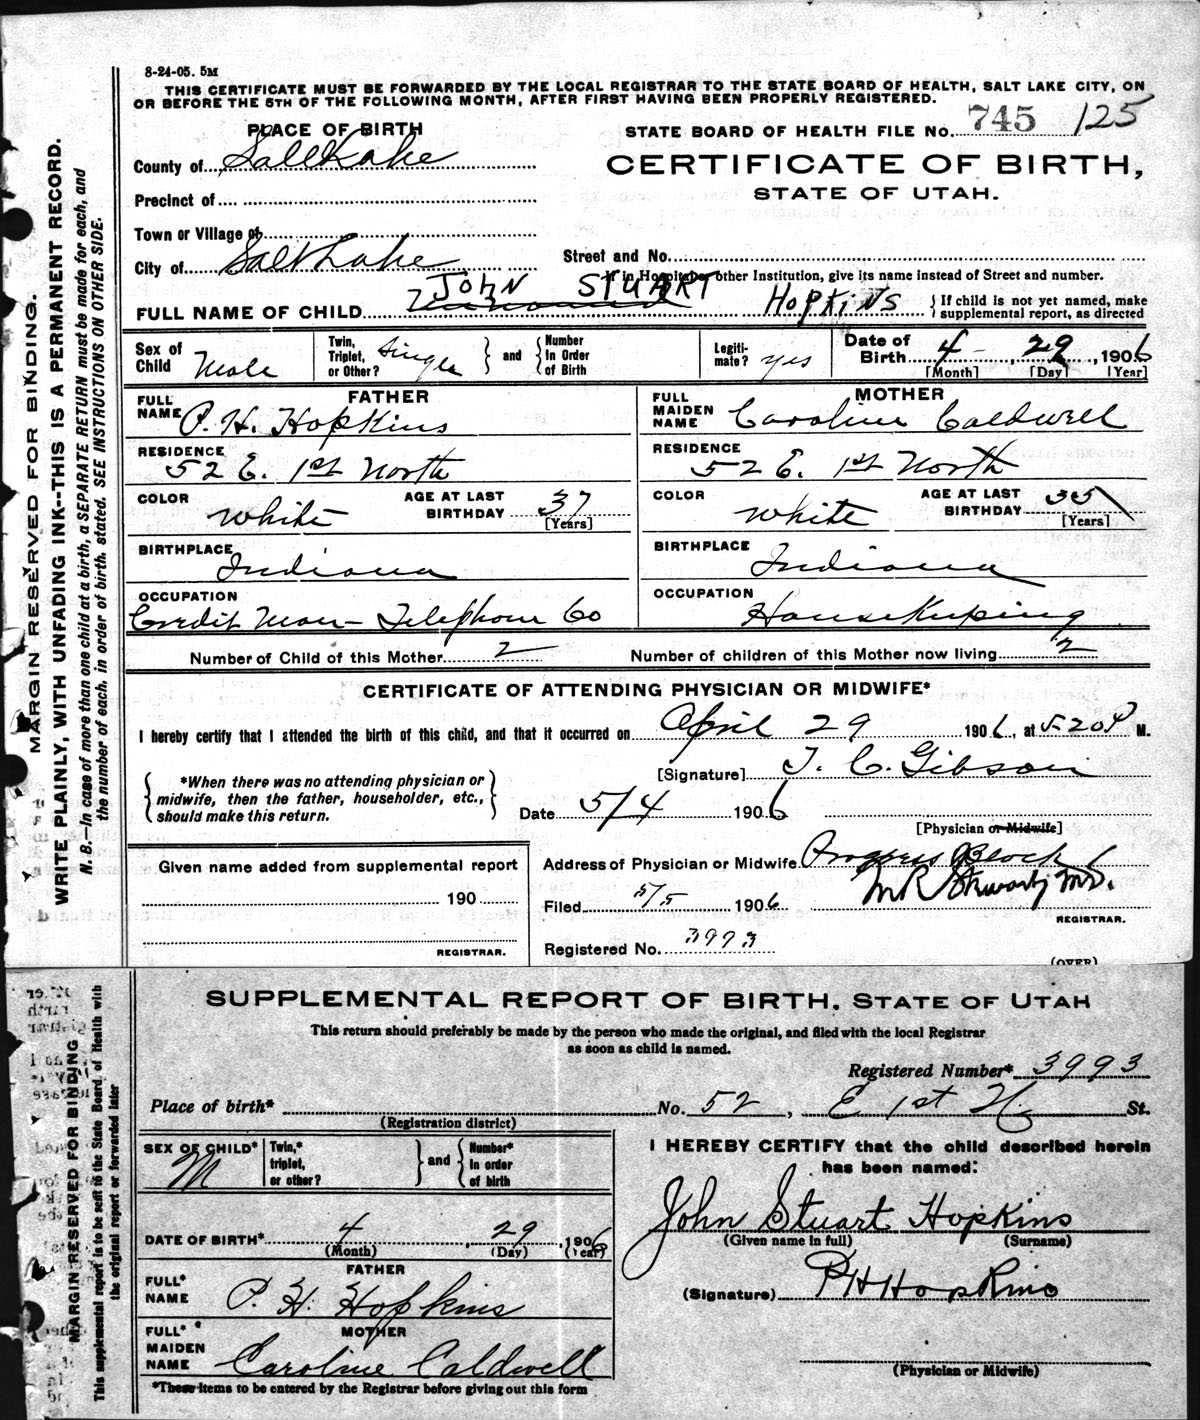 8-24-05. 5M
THIS CERTIFICATE MUST BE FORWARDED BY THE LOCAL REGISTRAR TO THE STATE BOARD OF HEALTH, SALT LAKE CITY, ON
OR BEFORE THE 5TH OF THE FOLLOWING MONTH, AFTER FIRST HAVING BEEN PROPERLY REGISTERED.
PLACE OF BIRTH
STATE BOARD OF HEALTH FILE No. 745 125
County of Salt Lake
CERTIFICATE OF BIRTH,
STATE OF UTAH.
Precinct of
Town or Village of
City of Salt Lake
Street and No.
If in Hospital or other Institution, give its name instead of Street and number.
FULL NAME OF CHILD JOHN STUART HOPKINS
{If child is not yet named, make
supplemental report, as directed
Sex of Child Male
Twin, Triplet, or Other? Single } and { Number In Order of Birth
Legiti-mate? yes
Date of Birth 4 - 29, 1906
[Month] [Day] [Year]
FATHER
FULL NAME P. H. Hopkins
RESIDENCE 52 E. 1st North
COLOR White
AGE AT LAST BIRTHDAY 37
[Years]
BIRTHPLACE Indiana
OCCUPATION
Credit Man - Telephone Co
MOTHER
FULL MAIDEN NAME Caroline Caldwell
RESIDENCE 52 E. 1st North
COLOR White
AGE AT LAST BIRTHDAY 35
[Years]
BIRTHPLACE Indiana
OCCUPATION
HouseKeeping
Number of Child of this Mother 2
Number of children of this Mother now living 2
CERTIFICATE OF ATTENDING PHYSICIAN OR MIDWIFE*
I hereby certify that I attended the birth of this child, and that it occurred on April 29 1906, at 5-20 P M.
{ *When there was no attending physician or
midwife, then the father, householder, etc.,
should make this return. }
[Signature] T. C. Gibson
Date 5/4 1906
[Physician or Midwife]
Given name added from supplemental report
190
REGISTRAR.
Address of Physician or Midwife Progress Block
Filed 5/5 1906
M R Stewart, M.D.
REGISTRAR.
Registered No. 3993
(OVER)
MARGIN RESERVED FOR BINDING.
WRITE PLAINLY, WITH UNFADING INK--THIS IS A PERMANENT RECORD.
N. B.—In case of more than one child at a birth, a SEPARATE RETURN must be made for each, and
the number of each, in order of birth, stated. SEE INSTRUCTIONS ON OTHER SIDE.
SUPPLEMENTAL REPORT OF BIRTH, STATE OF UTAH
This return should preferably be made by the person who made the original, and filed with the local Registrar
as soon as child is named.
Registered Number* 3993
Place of birth* No. 52, E 1st N. St.
(Registration district)
SEX OF CHILD* M
Twin,* triplet, or other? } and { Number* in order of birth
I HEREBY CERTIFY that the child described herein
has been named:
John Stuart Hopkins
(Given name in full) (Surname)
DATE OF BIRTH* 4, 29, 1906
(Month) (Day) (Year)
FATHER
FULL* NAME P. H. Hopkins
(Signature) P H Hopkins
MOTHER
FULL* MAIDEN NAME Caroline Caldwell
(Physician or Midwife)
*These items to be entered by the Registrar before giving out this form
MARGIN RESERVED FOR BINDING
This supplemental report is to be sent to the State Board of Health with
the original report or forwarded later